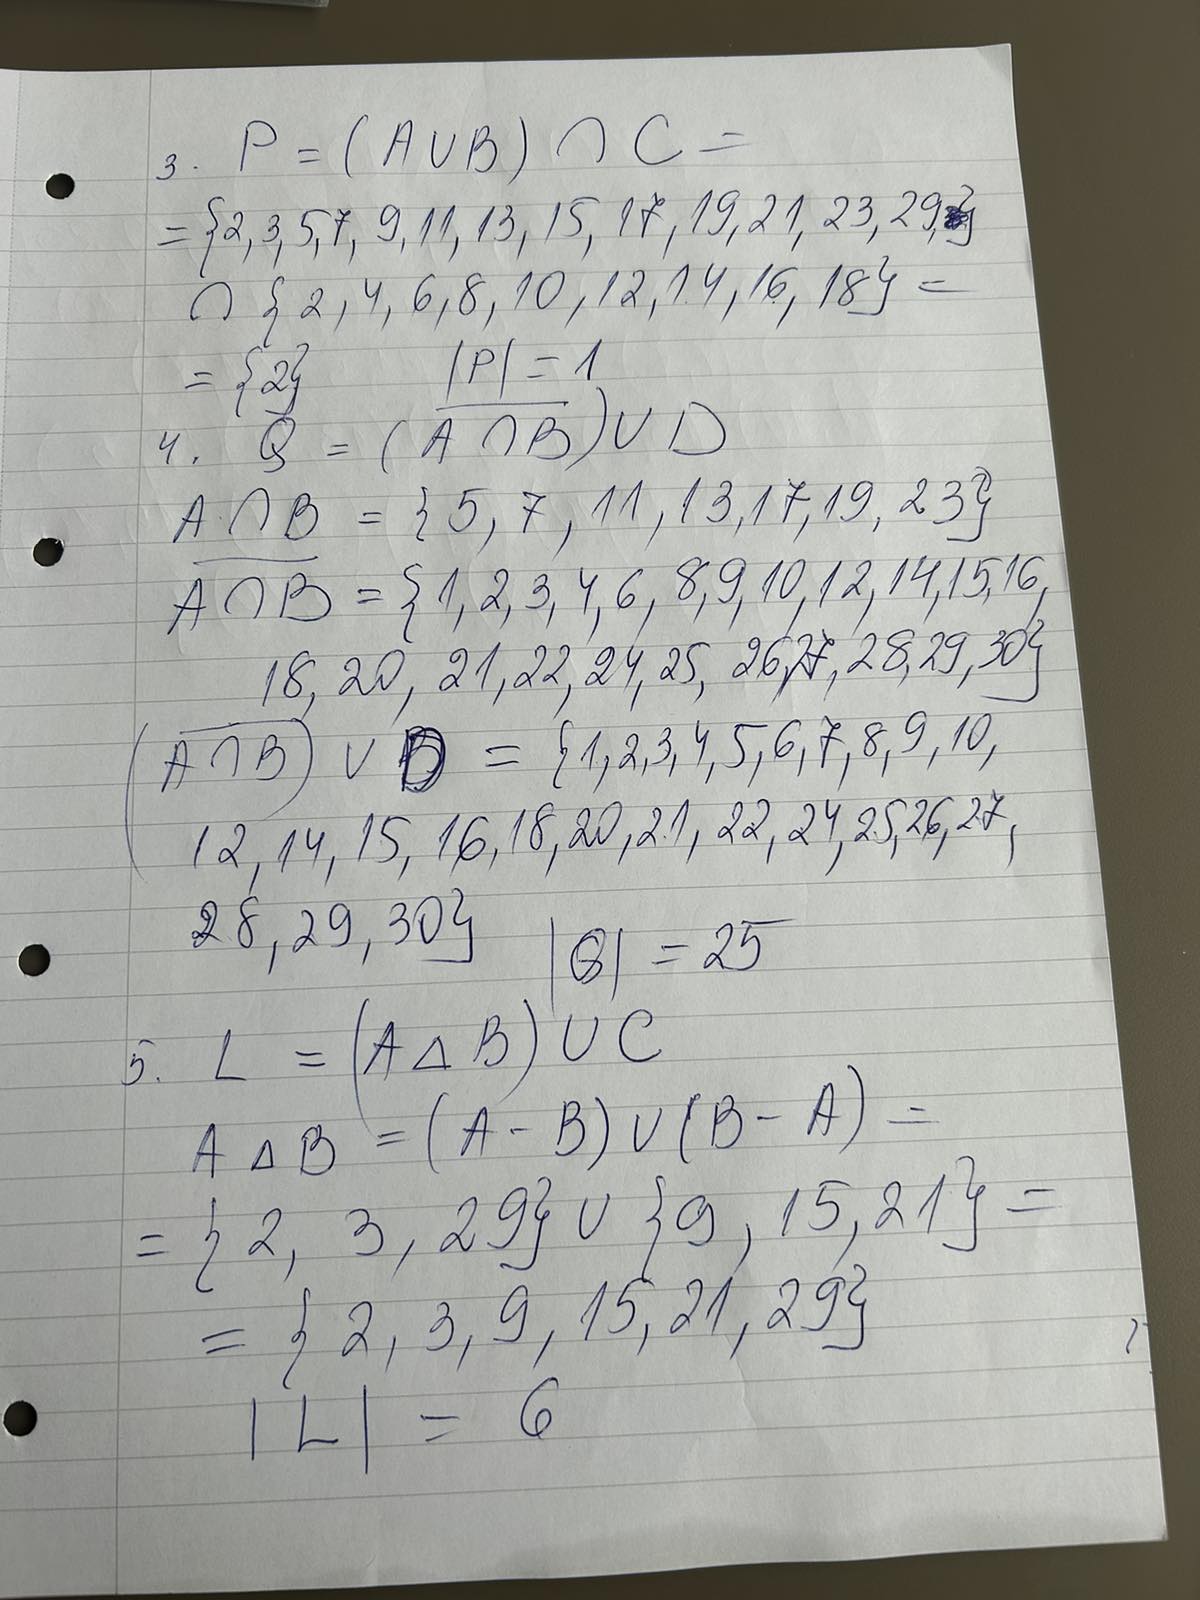 3. P = (A∪B) ∩ C =
= {2, 3, 5, 7, 9, 11, 13, 15, 17, 19, 21, 23, 29}
∩ {2, 4, 6, 8, 10, 12, 14, 16, 18} =
= {2} |P| = 1
4. Q = (\overline{A ∩ B}) ∪ D
A ∩ B = {5, 7, 11, 13, 17, 19, 23}
\overline{A ∩ B} = {1, 2, 3, 4, 6, 8, 9, 10, 12, 14, 15, 16,
18, 20, 21, 22, 24, 25, 26, 27, 28, 29, 30}
(\overline{A ∩ B}) ∪ D = {1, 2, 3, 4, 5, 6, 7, 8, 9, 10,
12, 14, 15, 16, 18, 20, 21, 22, 24, 25, 26, 27,
28, 29, 30} |Q| = 25
5. L = (A △ B) ∪ C
A △ B = (A - B) ∪ (B - A) =
= {2, 3, 29} ∪ {9, 15, 21} =
= {2, 3, 9, 15, 21, 29}
|L| = 6